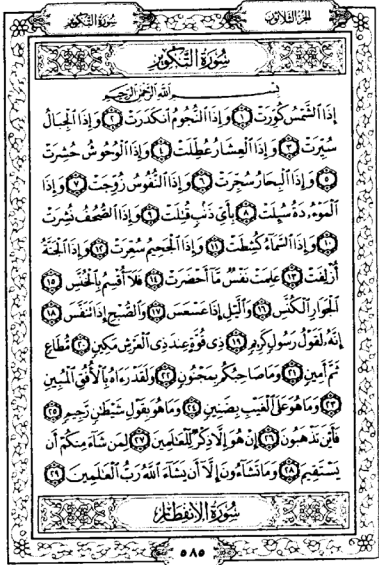 سُورَةُ التَّكْوِيرِ الجُزءُ الثَّلَاثُونَ
سُورَةُ التَّكْوِيرِ
بِسْمِ اللَّهِ الرَّحْمَٰنِ الرَّحِيمِ
إِذَا الشَّمْسُ كُوِّرَتْ ١ وَإِذَا النُّجُومُ انكَدَرَتْ ٢ وَإِذَا الْجِبَالُ
سُيِّرَتْ ٣ وَإِذَا الْعِشَارُ عُطِّلَتْ ٤ وَإِذَا الْوُحُوشُ حُشِرَتْ
٥ وَإِذَا الْبِحَارُ سُجِّرَتْ ٦ وَإِذَا النُّفُوسُ زُوِّجَتْ ٧ وَإِذَا
الْمَوْءُۥدَةُ سُئِلَتْ ٨ بِأَيِّ ذَنۢبٍ قُتِلَتْ ٩ وَإِذَا الصُّحُفُ نُشِرَتْ
١٠ وَإِذَا السَّمَآءُ كُشِطَتْ ١١ وَإِذَا الْجَحِيمُ سُعِّرَتْ ١٢ وَإِذَا الْجَنَّةُ
أُزْلِفَتْ ١٣ عَلِمَتْ نَفْسٌ مَّآ أَحْضَرَتْ ١٤ فَلَآ أُقْسِمُ بِالْخُنَّسِ ١٥
الْجَوَارِ الْكُنَّسِ ١٦ وَالَّيْلِ إِذَا عَسْعَسَ ١٧ وَالصُّبْحِ إِذَا تَنَفَّسَ ١٨
إِنَّهُۥ لَقَوْلُ رَسُولٍ كَرِيمٍ ١٩ ذِى قُوَّةٍ عِندَ ذِى الْعَرْشِ مَكِينٍ ٢٠ مُّطَاعٍ
ثَمَّ أَمِينٍ ٢١ وَمَا صَاحِبُكُم بِمَجْنُونٍ ٢٢ وَلَقَدْ رَءَاهُ بِالْأُفُقِ الْمُبِينِ
٢٣ وَمَا هُوَ عَلَى الْغَيْبِ بِضَنِينٍ ٢٤ وَمَا هُوَ بِقَوْلِ شَيْطَٰنٍ رَّجِيمٍ ٢٥
فَأَيْنَ تَذْهَبُونَ ٢٦ إِنْ هُوَ إِلَّا ذِكْرٌ لِّلْعَٰلَمِينَ ٢٧ لِمَن شَآءَ مِنكُمْ أَن
يَسْتَقِيمَ ٢٨ وَمَا تَشَآءُونَ إِلَّآ أَن يَشَآءَ اللَّهُ رَبُّ الْعَٰلَمِينَ ٢٩
سُورَةُ الِانفِطَارِ
٥٨٥